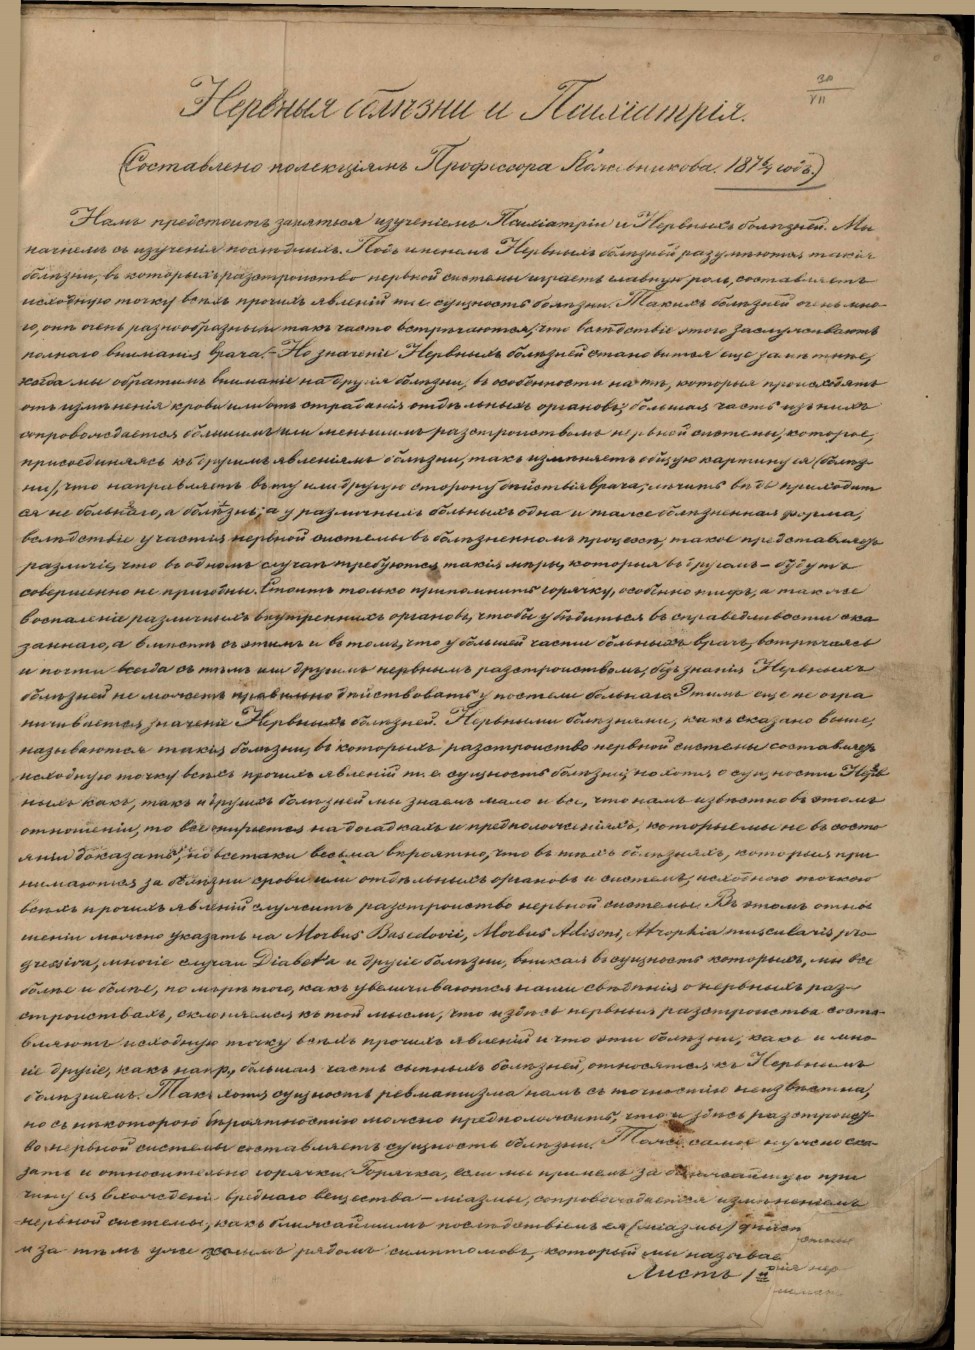 30
VII
Нервныя болѣзни и Психіатрія.
(Составлено по лекціямъ Профессора Кожевникова. 1876/7 годъ.)
Намъ предстоитъ заняться изученіемъ Психіатріи и Нервныхъ болѣзней. Мы
начнемъ съ изученія послѣднихъ. Подъ именемъ Нервныхъ болѣзней разумѣются такія
болѣзни, въ которыхъ разстройство нервной системы играетъ главную роль, составляетъ
исходную точку всѣхъ прочихъ явленій т. е. сущность болѣзни. Такихъ болѣзней очень мно-
го, онѣ очень разнообразны и такъ часто встрѣчаются, что вслѣдствіе этого заслуживаютъ
полнаго вниманія врача. – Но значеніе Нервныхъ болѣзней становится еще замѣтнѣе,
когда мы обратимъ вниманіе на другія болѣзни, въ особенности на тѣ, которыя происходятъ
отъ измѣненія крови или отъ страданія отдѣльныхъ органовъ; большая часть изъ нихъ
сопровождается большимъ или меньшимъ разстройствомъ нервной системы, которое,
присоединяясь къ другимъ явленіямъ болѣзни, такъ измѣняетъ общую картину ея (болѣз-
ни), что направляетъ въ ту или другую сторону дѣйствія врача; лѣчить вѣдь приходит
ся не больнаго, а болѣзнь; а у различныхъ больныхъ одна и таже болѣзненная форма,
вслѣдствіе участія нервной системы въ болѣзненномъ процессѣ, такое представляетъ
различіе, что въ одномъ случаѣ требуются такія мѣры, которыя въ другомъ – будутъ
совершенно не пригодны. Стоитъ только припомнить горячку, особенно тифъ, а также
воспаленіе различныхъ внутреннихъ органовъ, чтобы убѣдиться въ справедливости ска
заннаго, а вмѣстѣ съ этимъ и въ томъ, что у большей части больныхъ врачъ, встрѣчаясь
и почти всегда съ тѣмъ или другимъ нервнымъ разстройствомъ, безъ знанія Нервныхъ
болѣзней не можетъ правильно дѣйствовать у постели больнаго. Этимъ еще не огра
ничивается значеніе Нервныхъ болѣзней. Нервными болѣзнями, какъ сказано выше,
называются такія болѣзни, въ которыхъ разстройство нервной системы составляетъ
исходную точку всѣхъ прочихъ явленій т. е. сущность болѣзни; но хотя о сущности Нерв
ныхъ какъ, такъ и другихъ болѣзней мы знаемъ мало и все, что намъ извѣстно въ этомъ
отношеніи, то все опирается на догадкахъ и предположеніяхъ, которые мы не въ состо
яніи доказать, но всетаки весьма вѣроятно, что въ тѣхъ болѣзняхъ, которыя при
нимаются за болѣзни крови или отдѣльныхъ органовъ и системъ, исходною точкою
всѣхъ прочихъ явленій служитъ разстройство нервной системы. Въ этомъ отно
шеніи можно указать на Morbus Basedovii, Morbus Adisoni, Atrophia muscularis pro
gressiva, многіе случаи Diabet'a и другіе болѣзни, вникая въ сущность которыхъ, мы все
болѣе и болѣе, по мѣрѣ того, какъ увеличиваются наши свѣдѣнія о нервныхъ раз-
стройствахъ, склоняемся къ той мысли, что и здѣсь нервныя разстройства соста-
вляютъ исходную точку всѣхъ прочихъ явленій и что эти болѣзни, какъ и мно-
гіе другіе, какъ напр., большая часть сыпныхъ болѣзней, относятся къ Нервнымъ
болѣзнямъ. Такъ хотя сущность ревматизма намъ съ точностію неизвѣстна,
но съ нѣкоторою вѣроятностію можно предположить, что и здѣсь разстройст
во нервной системы составляетъ сущность болѣзни. Тоже самое нужно ска-
зать и относительно горячки. Горячка, если мы примемъ за ближайшую при
чину ея вхожденіе вреднаго вещества – міазмы, сопровождается измѣненіемъ
нервной системы, какъ ближайшимъ послѣдствіемъ ея (міазмы) дѣйст
и за тѣмъ уже цѣлымъ рядомъ симптомовъ, который мы называе
Листъ 1й